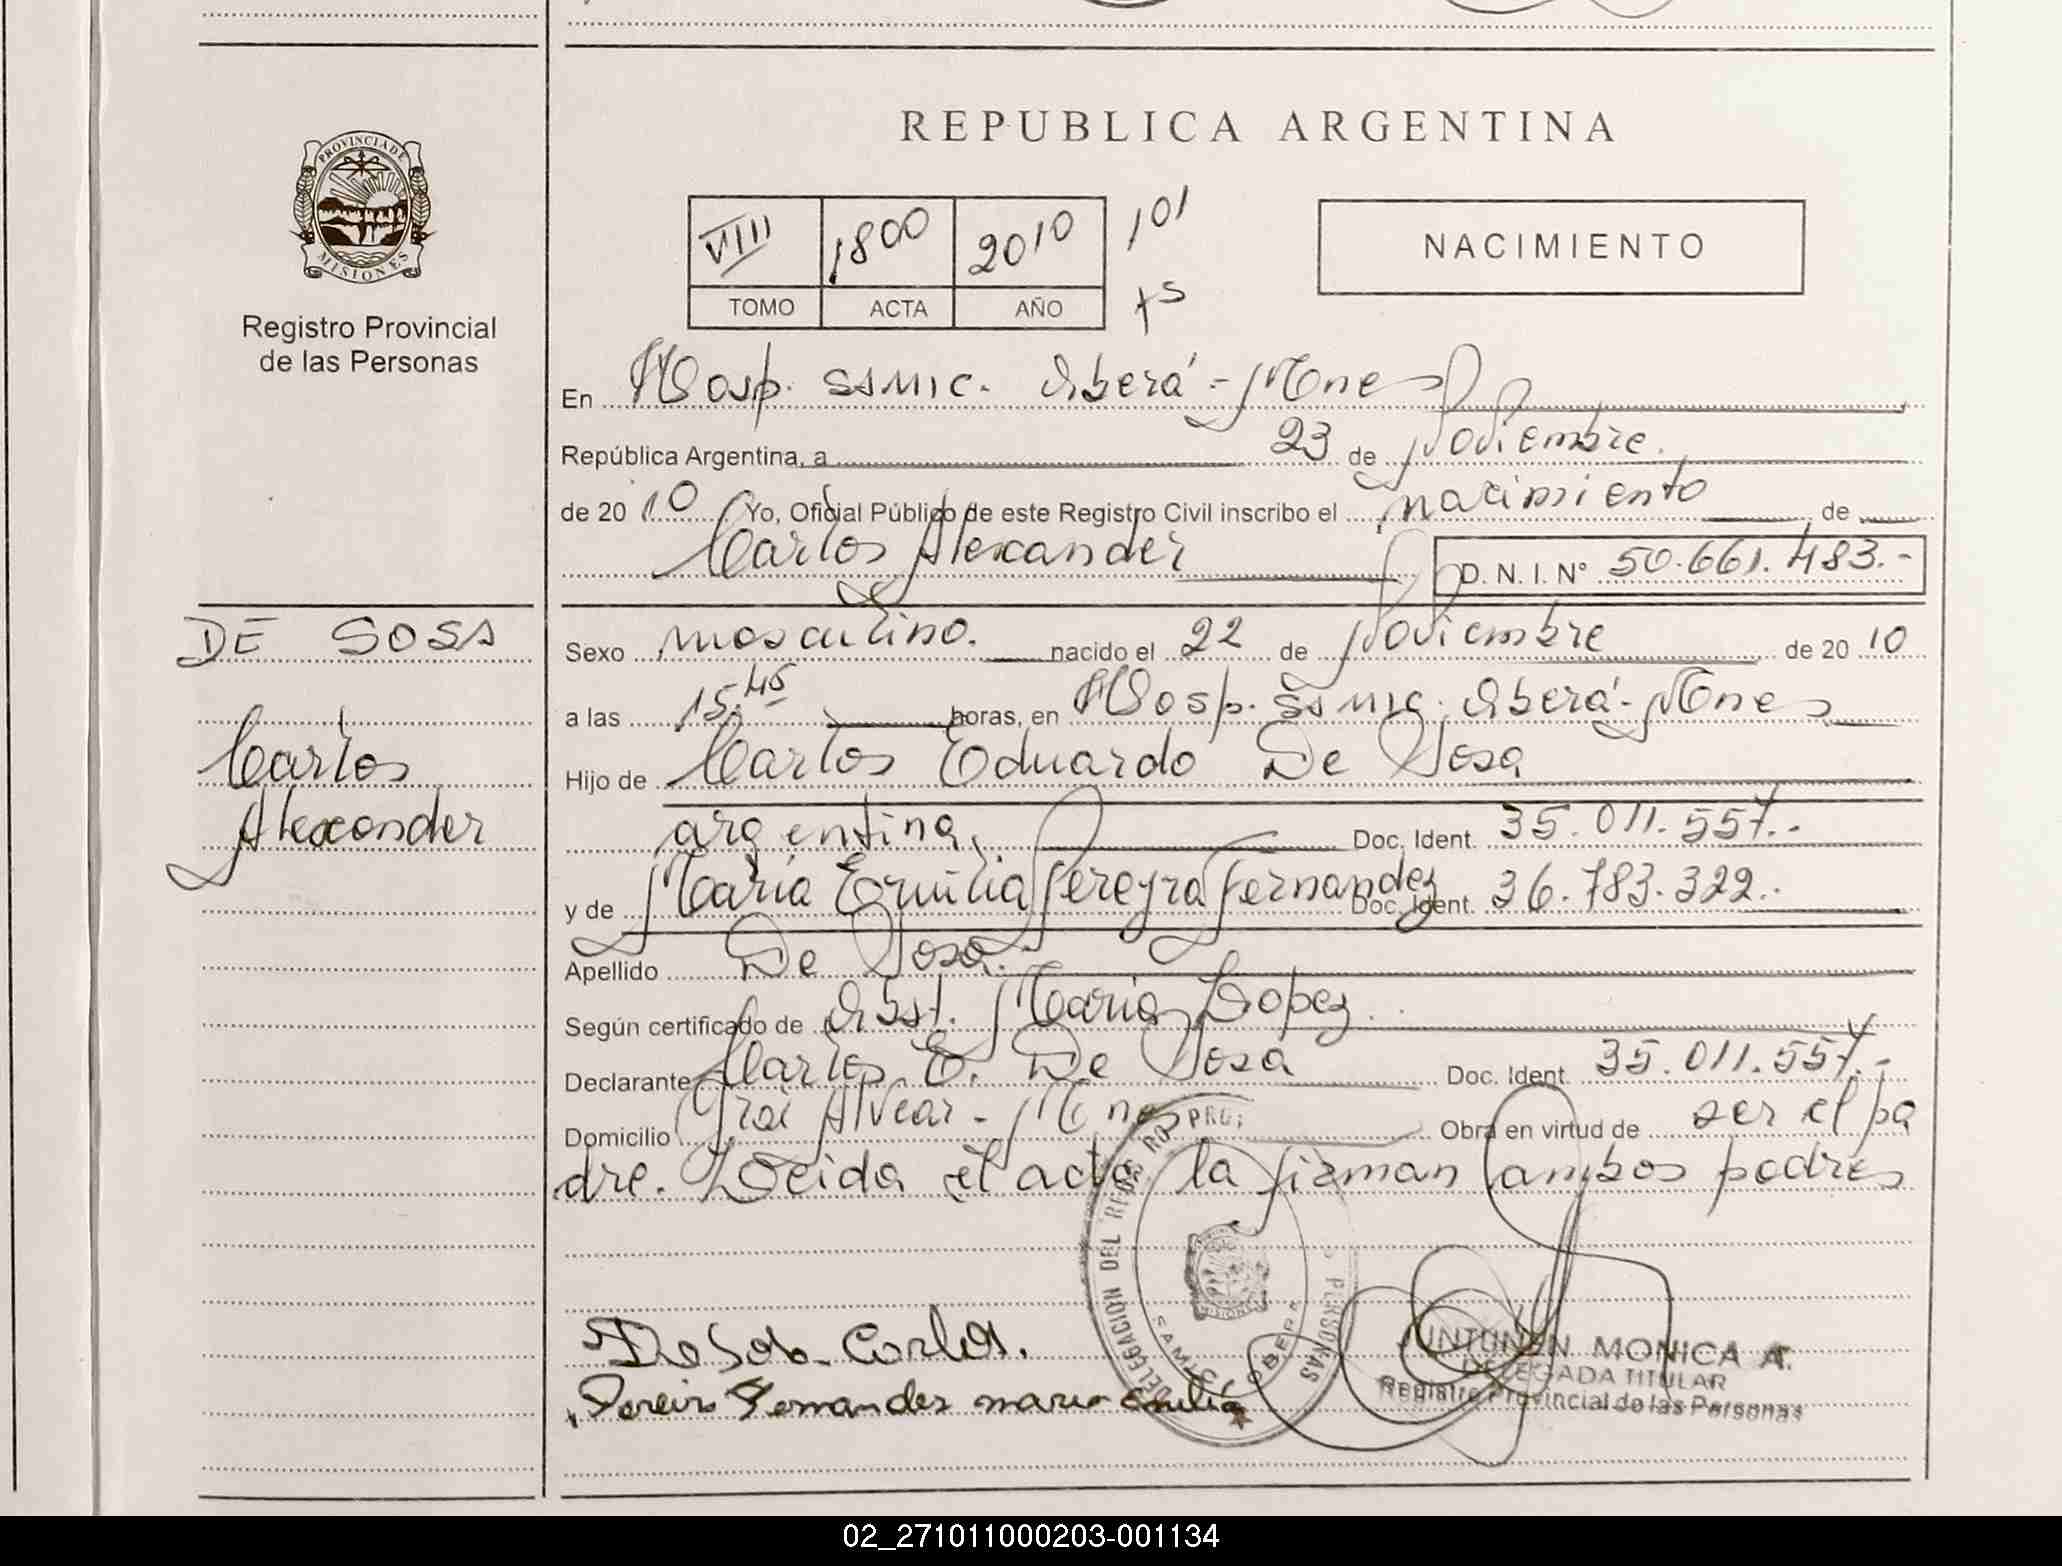 REPUBLICA ARGENTINA
PROVINCIA DE
MISIONES
Registro Provincial
de las Personas
VIII 1800 2010 101
TOMO ACTA AÑO
NACIMIENTO
En Hosp. SSMIC. Oberá - Mnes
República Argentina, a 23 de Noviembre.
de 20 10 Yo, Oficial Público de este Registro Civil inscribo el nacimiento de
Carlos Alexander D. N. I. N° 50.661.483.-
DE SOSA
Carlos
Alexander
Sexo masculino. nacido el 22 de Noviembre de 20 10
a las 15.45 horas, en Hosp. SSMIC. Oberá - Mnes
Hijo de Carlos Eduardo De Sosa
argentina. Doc. Ident. 35.011.557.-
y de María Emilia Pereyra Fernandez Doc. Ident. 36.783.322.-
Apellido De Sosa.
Según certificado de Obst. María Lopez.
Declarante Carlos E. De Sosa Doc. Ident. 35.011.557.-
Domicilio Gral Alvear - Mnes Obra en virtud de ser el pa
dre. Leida el acta la firman ambos padres
De Sosa Carlos.
Pereira Fernandez maria Emilia
DELEGACION DEL REGISTRO PERSONAS
MISIONES
OBERA
JUNTUNEN MONICA A.
DELEGADA TITULAR
Registro Provincial de las Personas
02_271011000203-001134